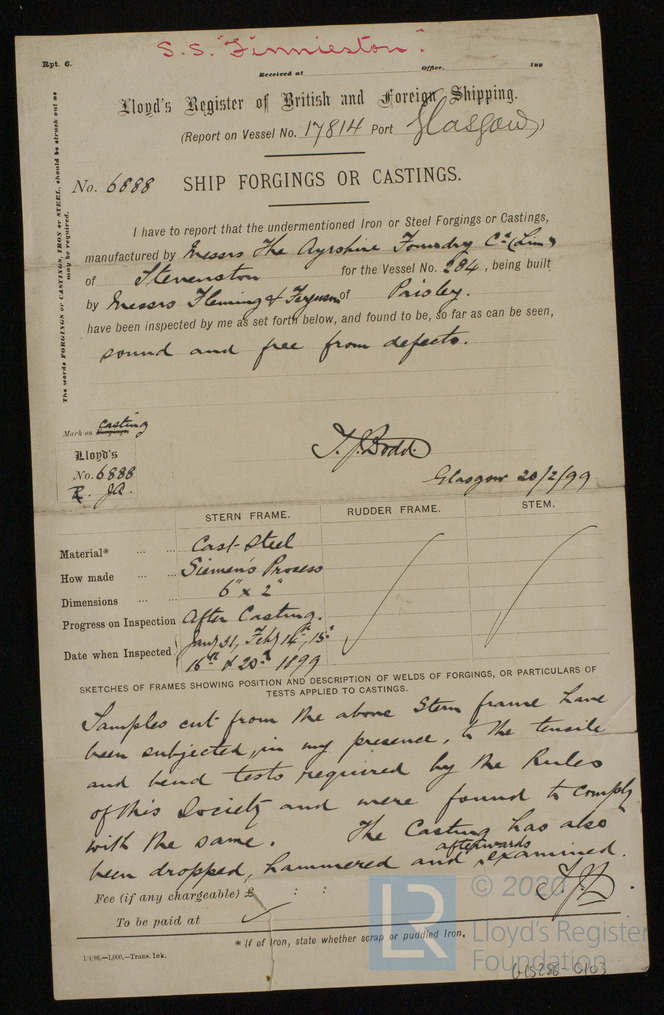 S.S. "Finnieston".
Rpt. 6.
Received at Office, 189
Lloyd's Register of British and Foreign Shipping.
(Report on Vessel No. 17814 Port Glasgow)
No. 6888 SHIP FORGINGS OR CASTINGS.
The words FORGINGS or CASTINGS, IRON or STEEL, should be struck out as
may be required.
I have to report that the undermentioned Iron or Steel Forgings or Castings,
manufactured by Messrs The Ayrshire Foundry Co (Lim)
of Stevenston for the Vessel No. 284, being built
by Messrs Fleming & Ferguson of Paisley.
have been inspected by me as set forth below, and found to be, so far as can be seen,
sound and free from defects.
casting
Mark on Forgings
Lloyd's
No. 6888
T.J. Dodd.
Glasgow 20/2/99
STERN FRAME. RUDDER FRAME. STEM.
Material* Cast-Steel
How made Siemen's Process
Dimensions 6" x 2"
Progress on Inspection After Casting.
Date when Inspected Jany 31, Feby 14th, 15th
16th & 20th 1899
SKETCHES OF FRAMES SHOWING POSITION AND DESCRIPTION OF WELDS OF FORGINGS, OR PARTICULARS OF
TESTS APPLIED TO CASTINGS.
Samples cut from the above Stern frame have
been subjected, in my presence, to the tensile
and bend tests required by the Rules
of this Society and were found to comply
with the same. The Casting has also
been dropped, hammered and afterwards examined.
T.J.D.
Fee (if any chargeable) £ : :
To be paid at
* If of Iron, state whether scrap or puddled Iron.
1/4/98.—1,000.—Trans. Ink.
LR
© 2020
Lloyd's Register
Foundation